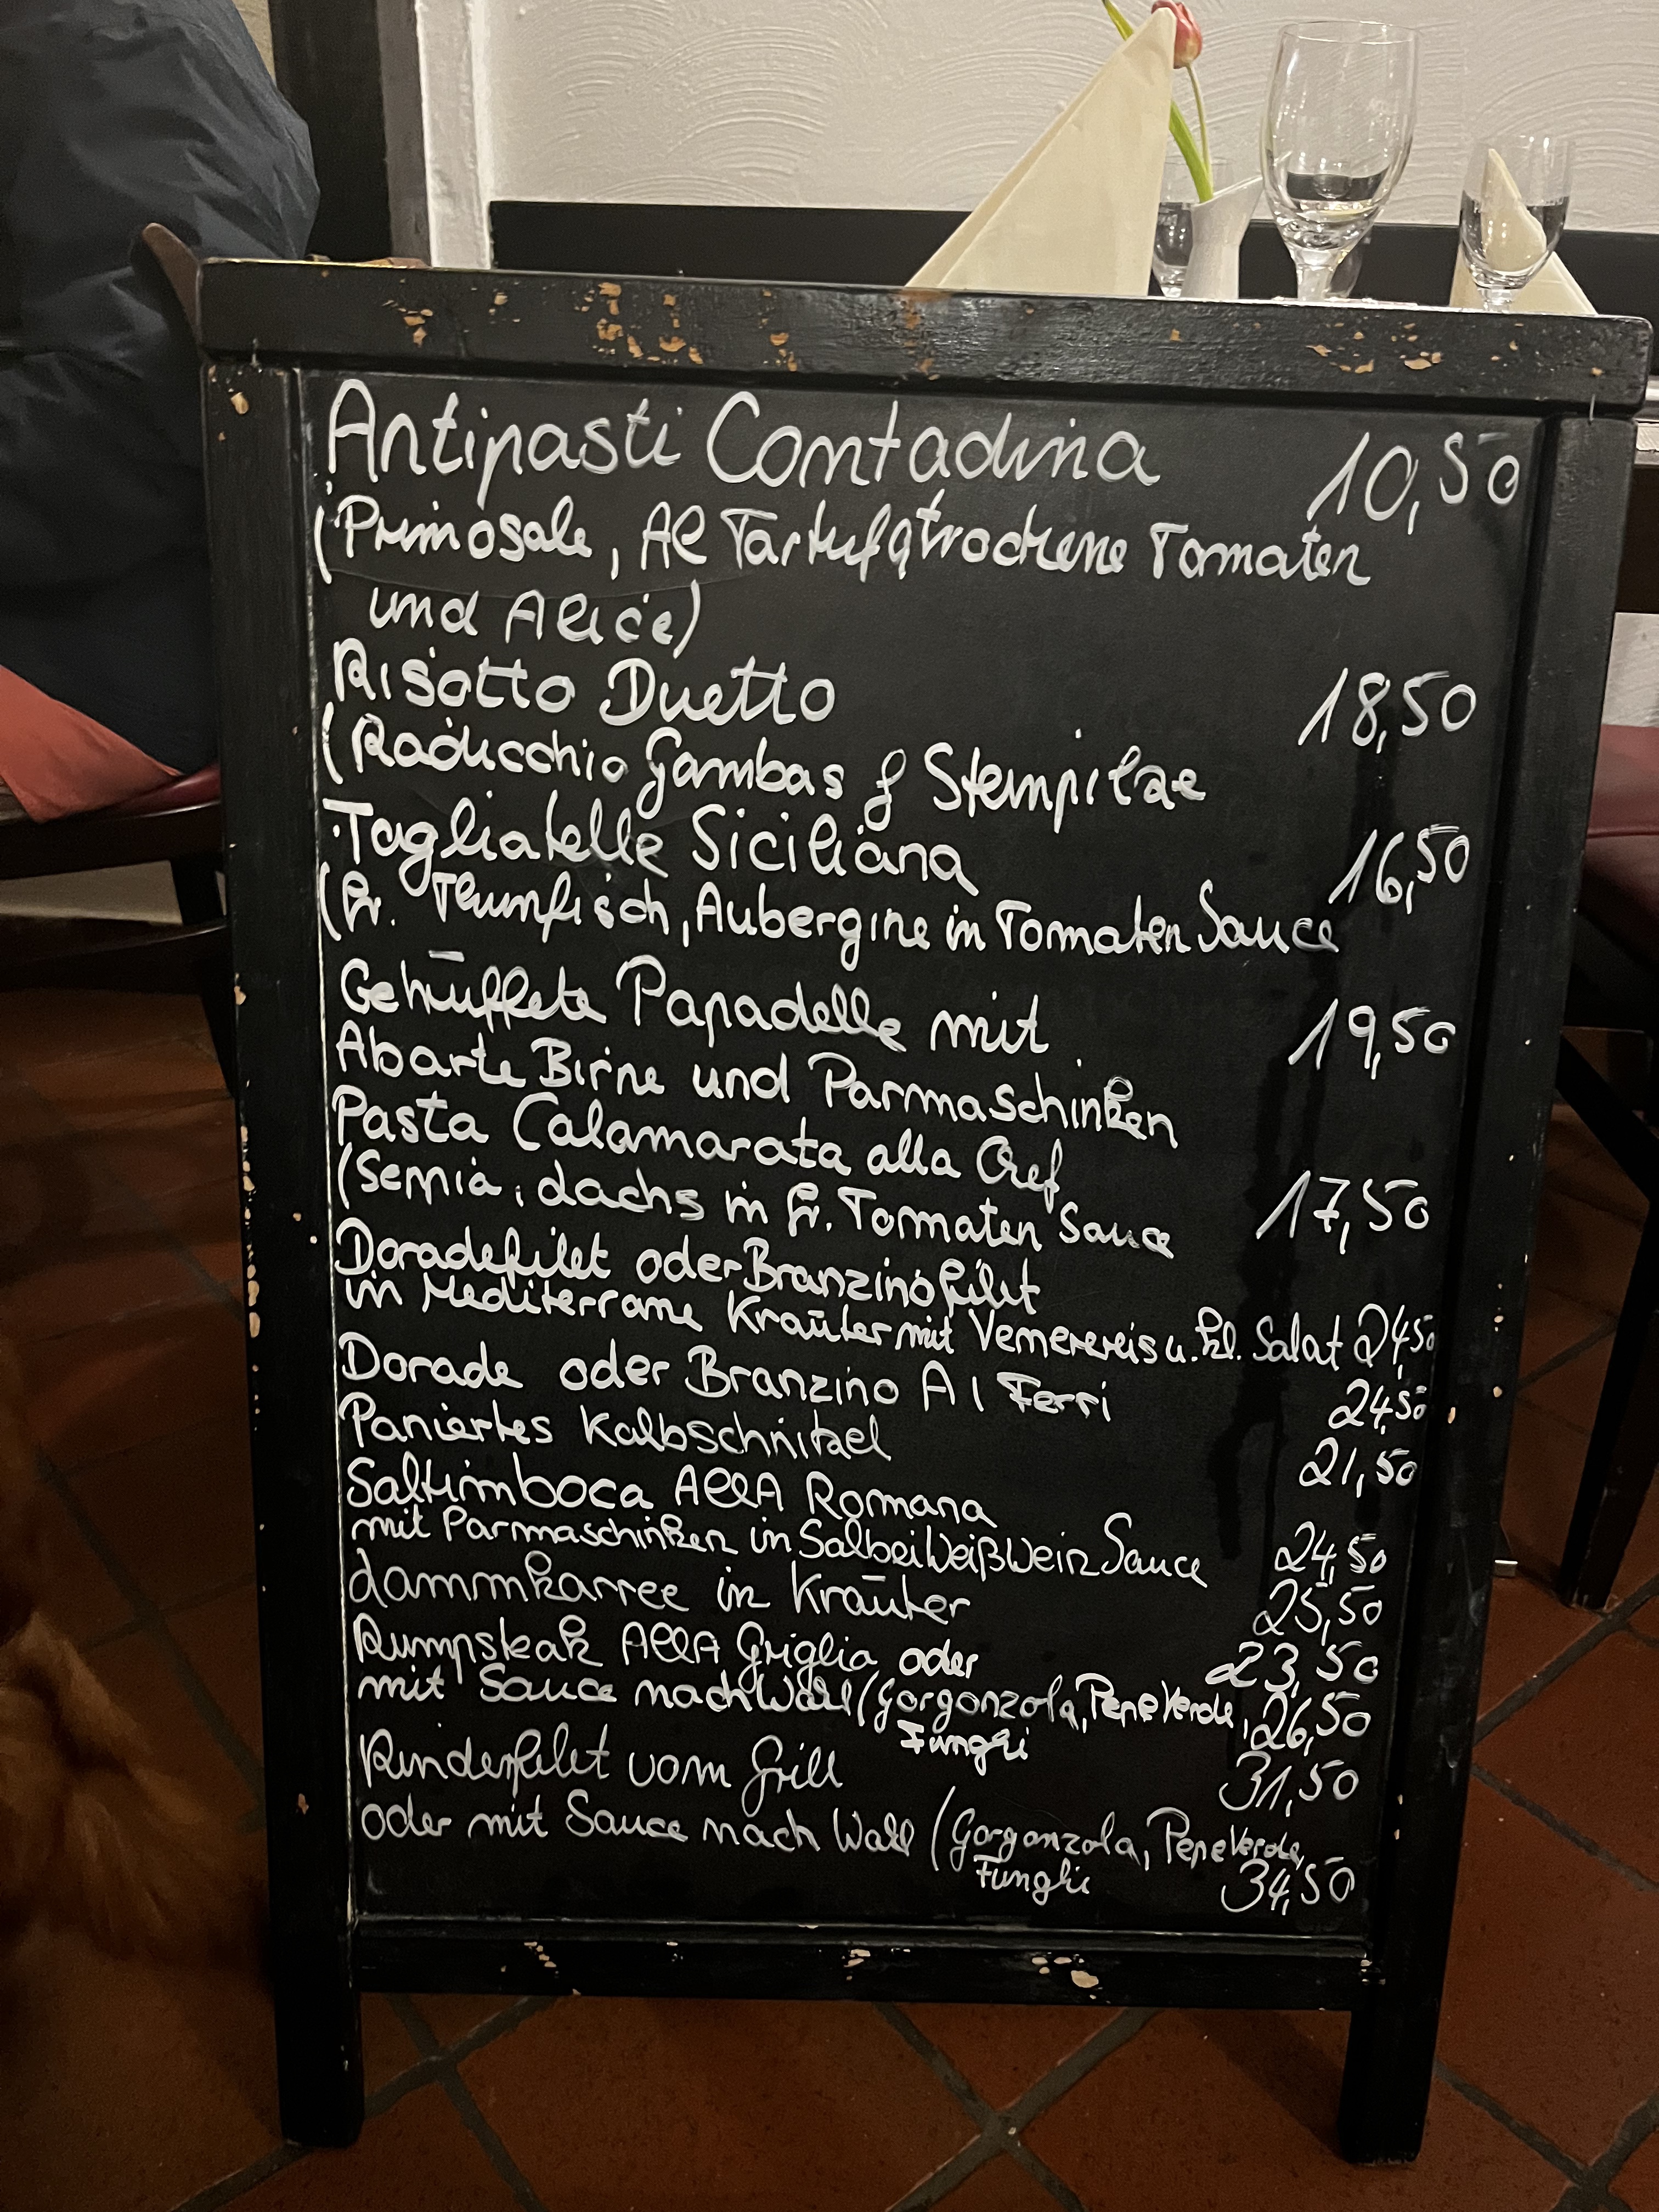 Antipasti Contadina 10,50
(Primosale, Al Tartufo, getrockene Tomaten
und Alice)
Risotto Duetto 18,50
(Radicchio Gambas & Steinpilze
Tagliatelle Siciliana 16,50
(fr. Thunfisch, Aubergine in Tomaten Sauce
Papadelle mit 19,50
Birne und Parmaschinken
Pasta Calamarata alla Chef
(Sepia, Lachs in fr. Tomaten Sauce 17,50
Doradefilet oder Branzinofilet
in Mediterrane Kräuter mit Venerereis u. kl. Salat 24,50
Dorade oder Branzino Al Ferri 24,50
Paniertes Kalbschnitzel 21,50
Saltimboca AllA Romana
mit Parmaschinken in Salbei Weißwein Sauce 24,50
Lammkarree in Kräuter 25,50
Rumpsteak AllA Griglia oder 23,50
mit Sauce nach Wahl (Gorgonzola, Pepe Verde, 26,50
Funghi
Rinderfilet vom Grill 31,50
oder mit Sauce nach Wahl (Gorgonzola, Pepe Verde,
Funghi 34,50